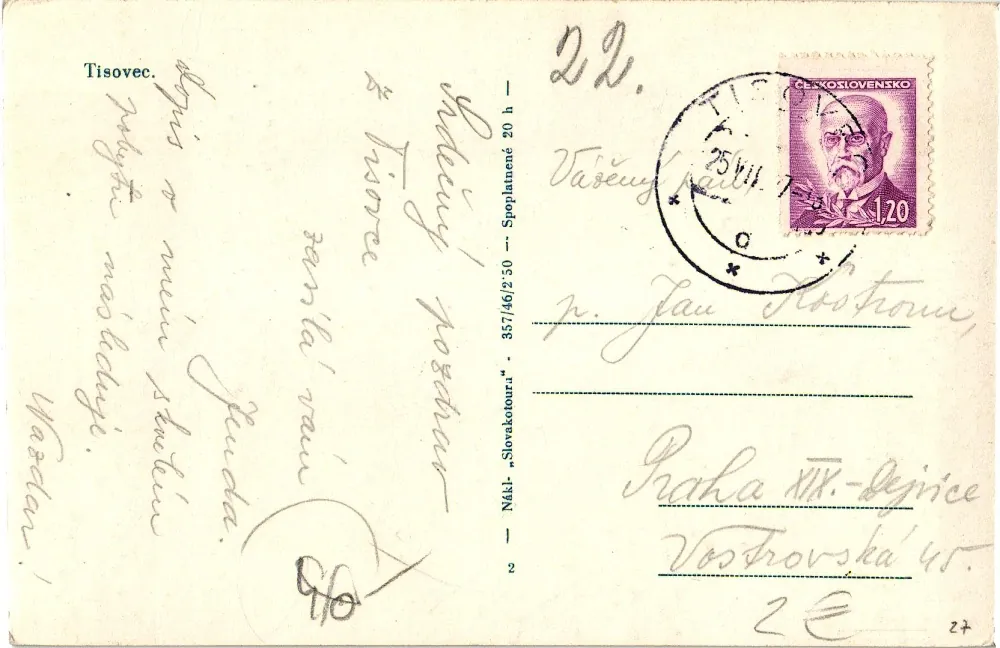 Tisovec.
Srdečný pozdrav
z Tisovce
zasílá vám
Jenda.
Dopis o mém
pobytu následuje.
Nazdar!
2 — Nákl- „Slovakotoura" - 357/46/2˙50 — Spoplatnené 20 h —
22.
ČESKOSLOVENSKO
1,20
TISOVEC
25 VII
Vážený pán
p. Jan
Praha XIX.-Dejvice
Vostrovská 45.
2 €
27